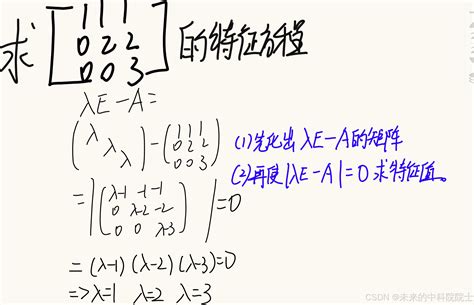 求 [1 1 1
0 2 2
0 0 3] 的特征方程
λE-A=
(λ
λ
λ) - (1 1 1
0 2 2
0 0 3)
(1)先化出 λE-A的矩阵
(2)再使|λE-A|=0 求特征值。
=|(λ-1 -1 -1
0 λ-2 -2
0 0 λ-3)|=0
=(λ-1)(λ-2)(λ-3)=0
=>λ=1 λ=2 λ=3
CSDN @未来的中科院院士